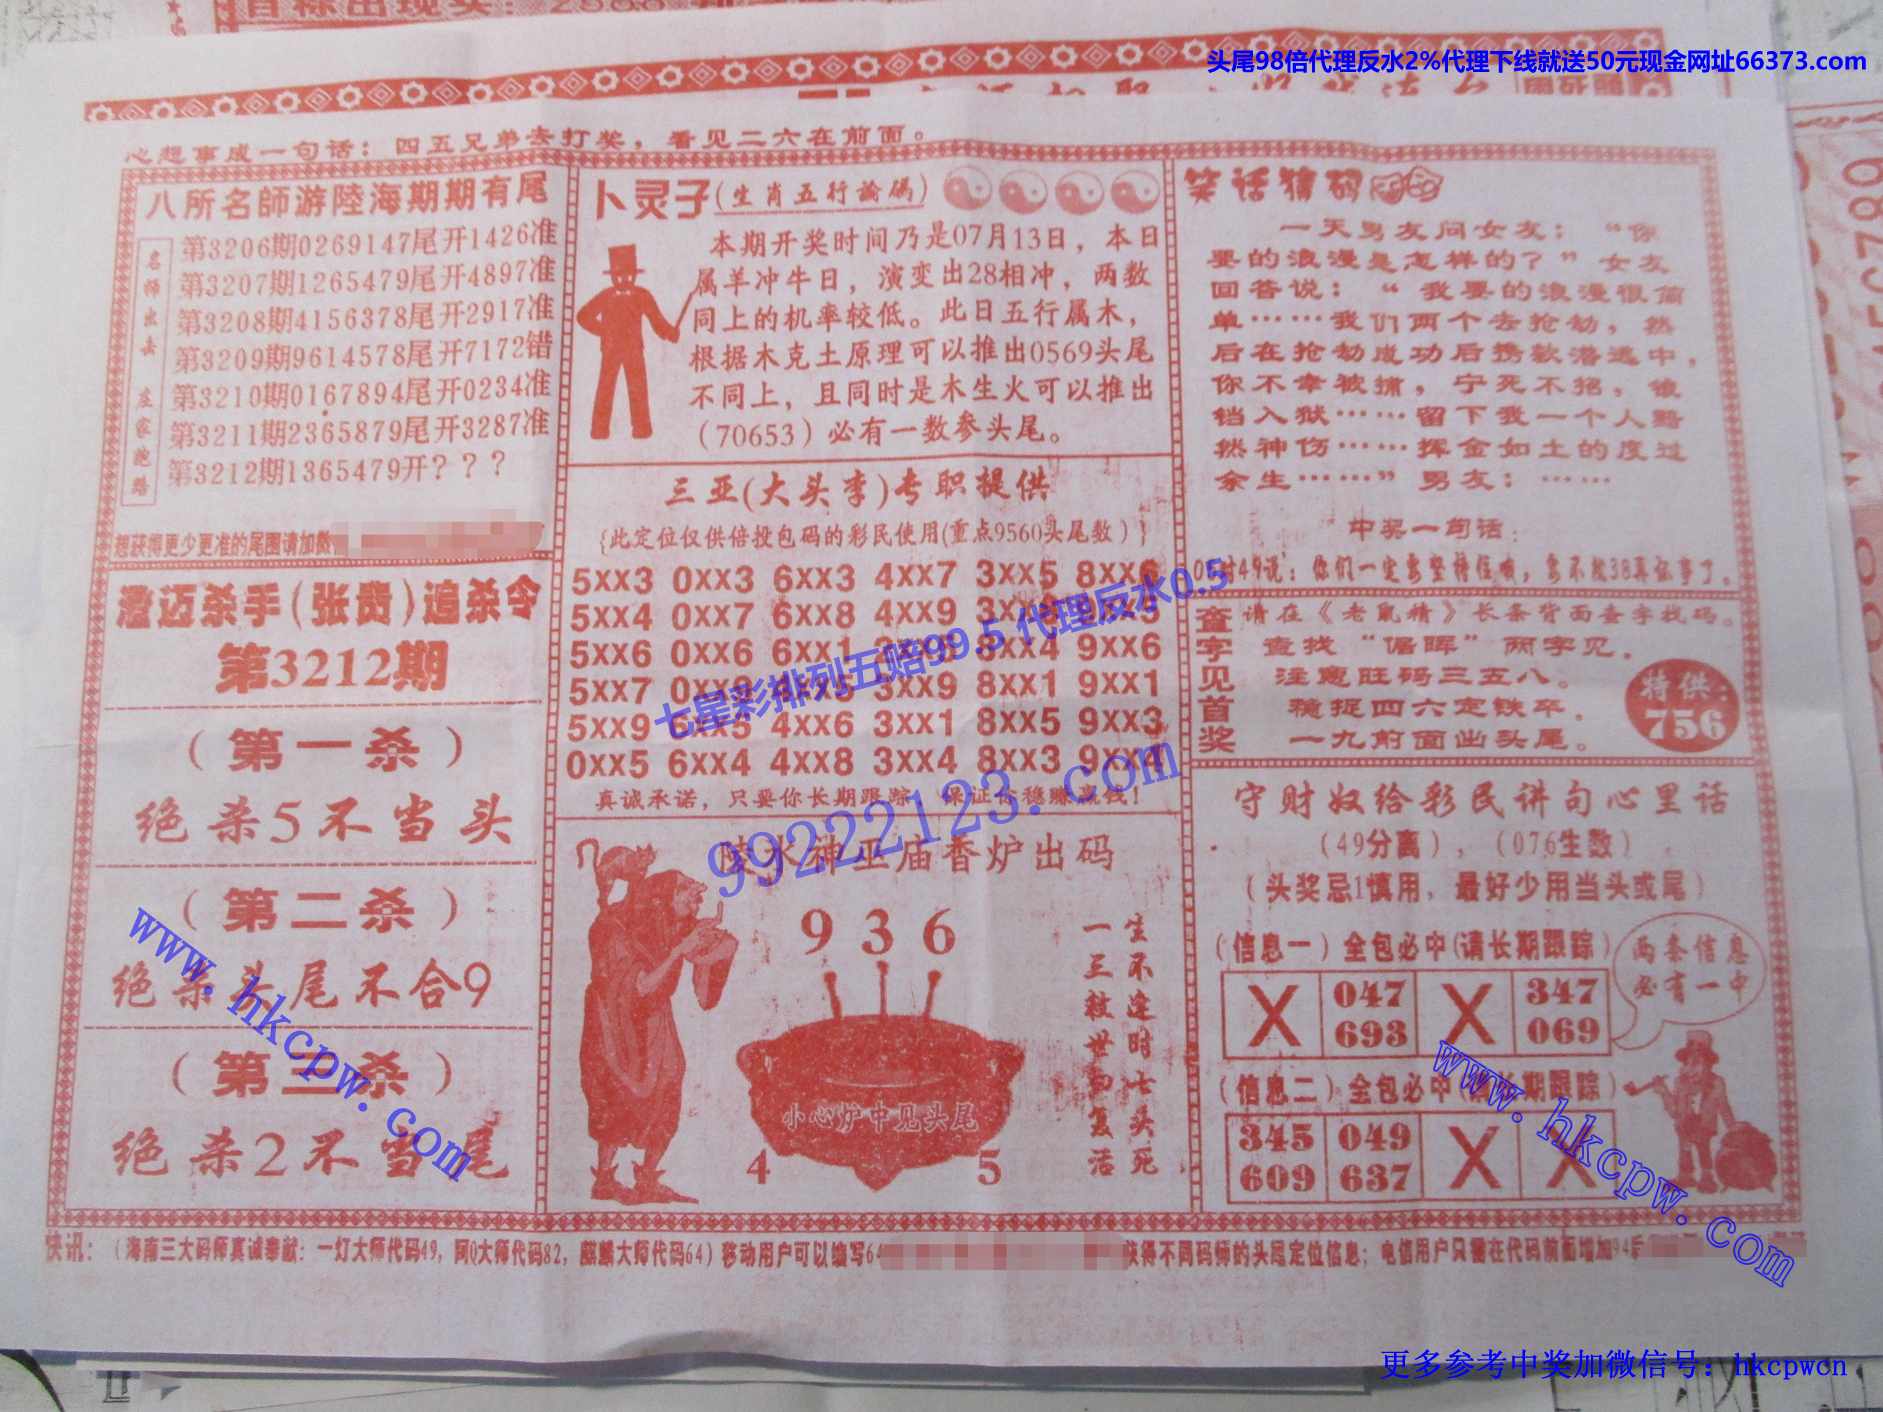 头尾98倍代理反水2%代理下线就送50元现金网址66373.com
心想事成一句话：四五兄弟去打奖，看见二六在前面。
八所名師游陸海期期有尾
名师出击 庄家跑路
第3206期0269147尾开1426准
第3207期1265479尾开4897准
第3208期4156378尾开2917准
第3209期9614578尾开7172错
第3210期0167894尾开0234准
第3211期2365879尾开3287准
第3212期1365479开？？？
想获得更少更准的尾图请加微
澄迈杀手(张贵)追杀令
第3212期
（第一杀）
绝杀5不当头
（第二杀）
绝杀头尾不合9
（第三杀）
绝杀2不当尾
卜灵子(生肖五行論碼)
本期开奖时间乃是07月13日，本日
属羊冲牛日，演变出28相冲，两数
同上的机率较低。此日五行属木，
根据木克土原理可以推出0569头尾
不同上，且同时是木生火可以推出
（70653）必有一数参头尾。
三亚(大头李)专职提供
{此定位仅供倍投包码的彩民使用(重点9560头尾数)}
5xx3 0xx3 6xx3 4xx7 3xx5 8xx6
5xx4 0xx7 6xx8 4xx9
5xx6 0xx6 6xx1 8xx4 9xx6
5xx7 3xx9 8xx1 9xx1
5xx9 6xx5 4xx6 3xx1 8xx5 9xx3
0xx5 6xx4 4xx8 3xx4 8xx3 9xx4
真诚承诺，只要你长期跟踪，保证你稳赚赢钱！
七星彩排列五赔99.5 代理反水0.5
99222123.com
陵水神巫庙香炉出码
9 3 6
小心炉中见头尾
4 5
生不逢时七头死
一三救世勿复活
笑话猜码
一天男友问女友：“你
要的浪漫是怎样的？”女友
回答说：“我要的浪漫很简
单……我们两个去抢劫，然
后在抢劫成功后携款潜逃中，
你不幸被捕，宁死不招，锒
铛入狱……留下我一个人黯
然神伤……挥金如土的度过
余生……”男友：……
中奖一句话：
49说：你们一定要坚持住哦，
查字见首奖
请在《老鼠精》长条背面查字找码。
查找“倨晖”两字见。
注意旺码三五八。
稳捉四六定铁卒。
一九前面出头尾。
特供：
756
守财奴给彩民讲句心里话
（49分离），（076生数）
（头奖忌1慎用，最好少用当头或尾）
（信息一）全包必中(请长期跟踪)
X 047 X 347
693 069
两条信息
必有一中
（信息二）全包必中(请长期跟踪)
345 049 X X
609 637
www.hkcpw.com
www.hkcpw.com
快讯：（海南三大码师真诚奉献：一灯大师代码49，阿Q大师代码82，麒麟大师代码64）移动用户可以编写64
获得不同码师的头尾定位信息；电信用户只需在代码前面增加94后
更多参考中奖加微信号：hkcpwcn